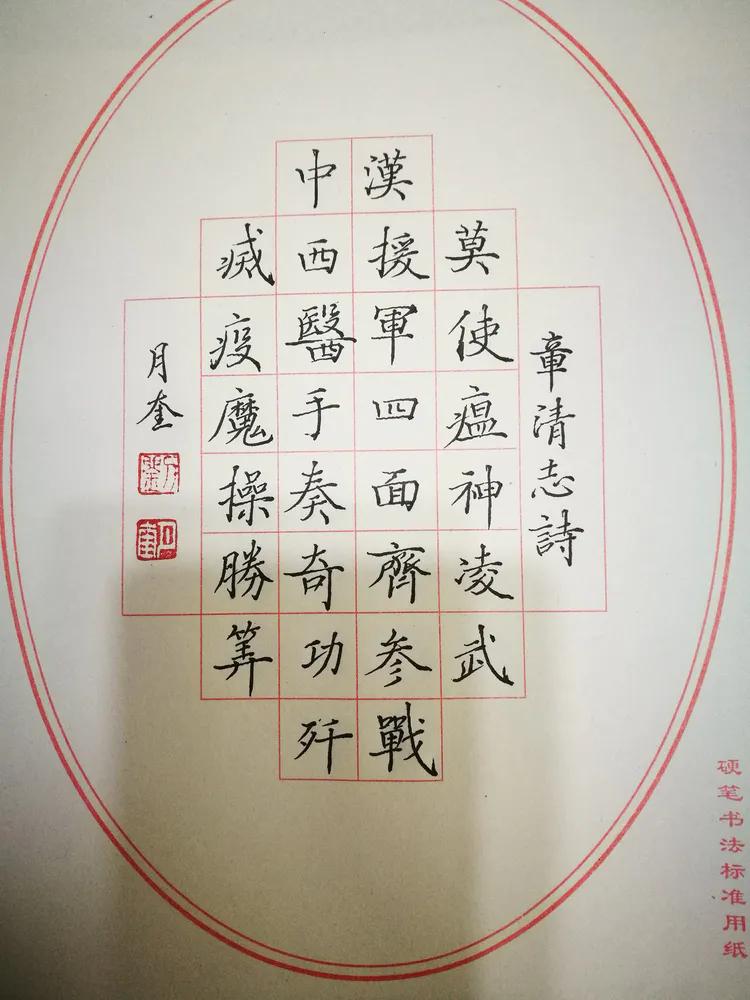 章清志詩
莫使瘟神凌武
漢援軍四面齊参戰
中西醫手奏奇功歼
滅疫魔操勝筭
月奎
硬笔书法标准用纸